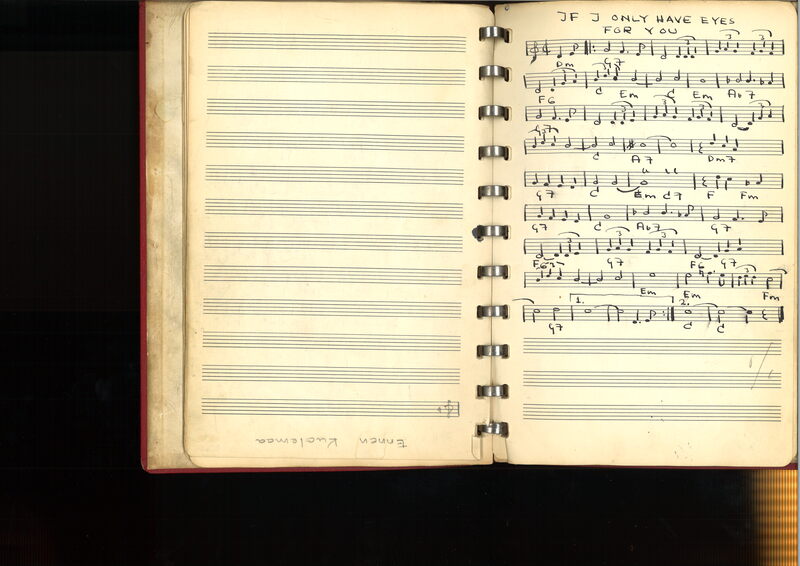 Ennen Kuolemaa
IF I ONLY HAVE EYES
FOR YOU
Dm G7
F6 C Em C Em Ab7
G7
C A7 Dm7
G7 C Em C7 F Fm
G7 C Ab7
F6 G7 F6 G7
Em Em Fm
1. 2.
G7 C C